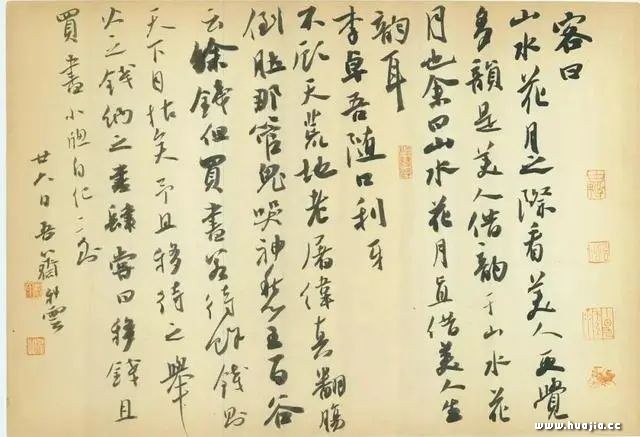 客曰
山水花月之際看美人更覺
多韻是美人借韻于山水花
月也余曰山水花月直借美人生
韻耳
李卓吾随口利牙
不顧天荒地老屠緯真翻腸
倒肚那管鬼哭神愁王百谷
云餘錢但買書若待餘錢則
天下目枯矣予且移待之舉
火之錢納之書肆嘗曰移錢且
買書
廿八日
www.huajia.cc